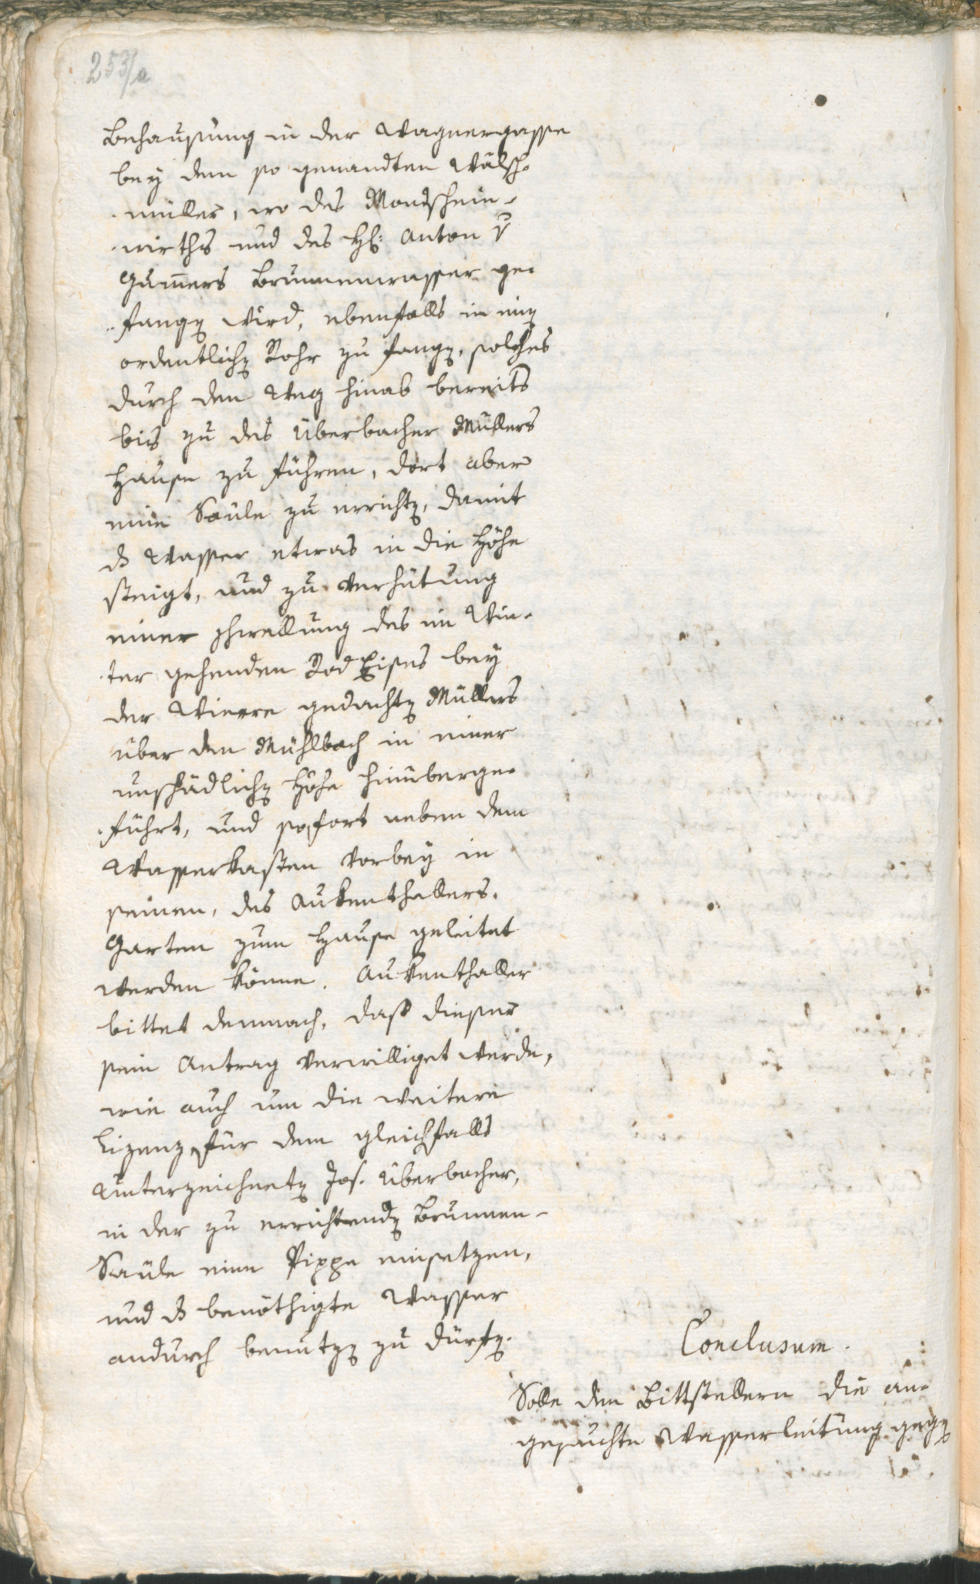 253/a
Behausung in der Wagnergasse
bey dem so genandten Wälsch-
müller, wo des Mondschein-
wirths und des H: Anton v
Gum̅ers Brunnenwasser ge-
fangen wird, ebenfalls in ein
ordentlichen Rohr zu fangen, solches
durch den Weg hinab bereits
bis zu des Überbacher Müllers
Hause zu führen, dort aber
eine Säule zu errichten, damit
ds Wasser etwas in die Höhe
steigt, und zu Verhütung
einer schwellung des im Win-
ter gehenden Rod Eises bey
der Viere gedachten Müllers
über den Mühlbach in einer
unschädlichen Höhe hinüberge-
führt, und sofort neben dem
Wasserkasten vorbey in
seinen, des Aukenthallers
Garten zum Hause geleitet
werden könne. Aukenthaller
bittet demnach, daß dieser
sein Antrag verwilliget werde,
wie auch um die weitere
Lizenz, für dem gleichfalls
Unterzeichneten Jos. Überbacher,
in der zu errichtenden Brunnen-
Säule eine Pippe einsetzen,
und ds benöthigte Wasser
andurch benutzen zu dürfen.
Conclusum.
Solle den Bittstellern die an-
gesuchte Wasserleitung gegen